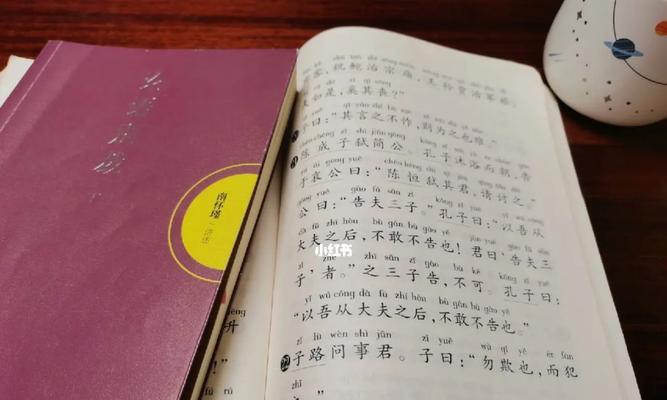 论语别裁
下
南怀瑾
讲述
升
！”
fú rú
客，祝鮀治宗庙，王孙贾治军旅。
夫如是，奚其丧？”
zǐ yuē qí yán zhī bù zuò zé wéi zhī yě nán
子曰：“其言之不怍，则为之也难。”
chén chéng zǐ shì jiǎn gōng
21 陈成子弑简公。孔子沐浴而朝，告
yú āi gōng yuē chén héng shì qí jūn qǐng tǎo zhī
于哀公曰：“陈恒弑其君，请讨之。”
gōng yuē gào fú sān zǐ kǒng zǐ yuē yǐ wú cóng
公曰：“告夫三子。”孔子曰：“以吾从
dà fū zhī hòu bù gǎn bú gào yě jūn yuē gào fú sān
大夫之后，不敢不告也！君曰‘告夫三
zǐ zhě zhī sān zǐ gào bù kě kǒng zǐ yuē
子’者。”之三子告，不可。孔子曰：
yǐ wú cóng dà fū zhī hòu bù gǎn bú gào yě
“以吾从大夫之后，不敢不告也。”
zǐ lù wèn shì jūn zǐ yuē wù qī yě ér fàn
22 子路问事君。子曰：“勿欺也，而犯
zhī
小红书